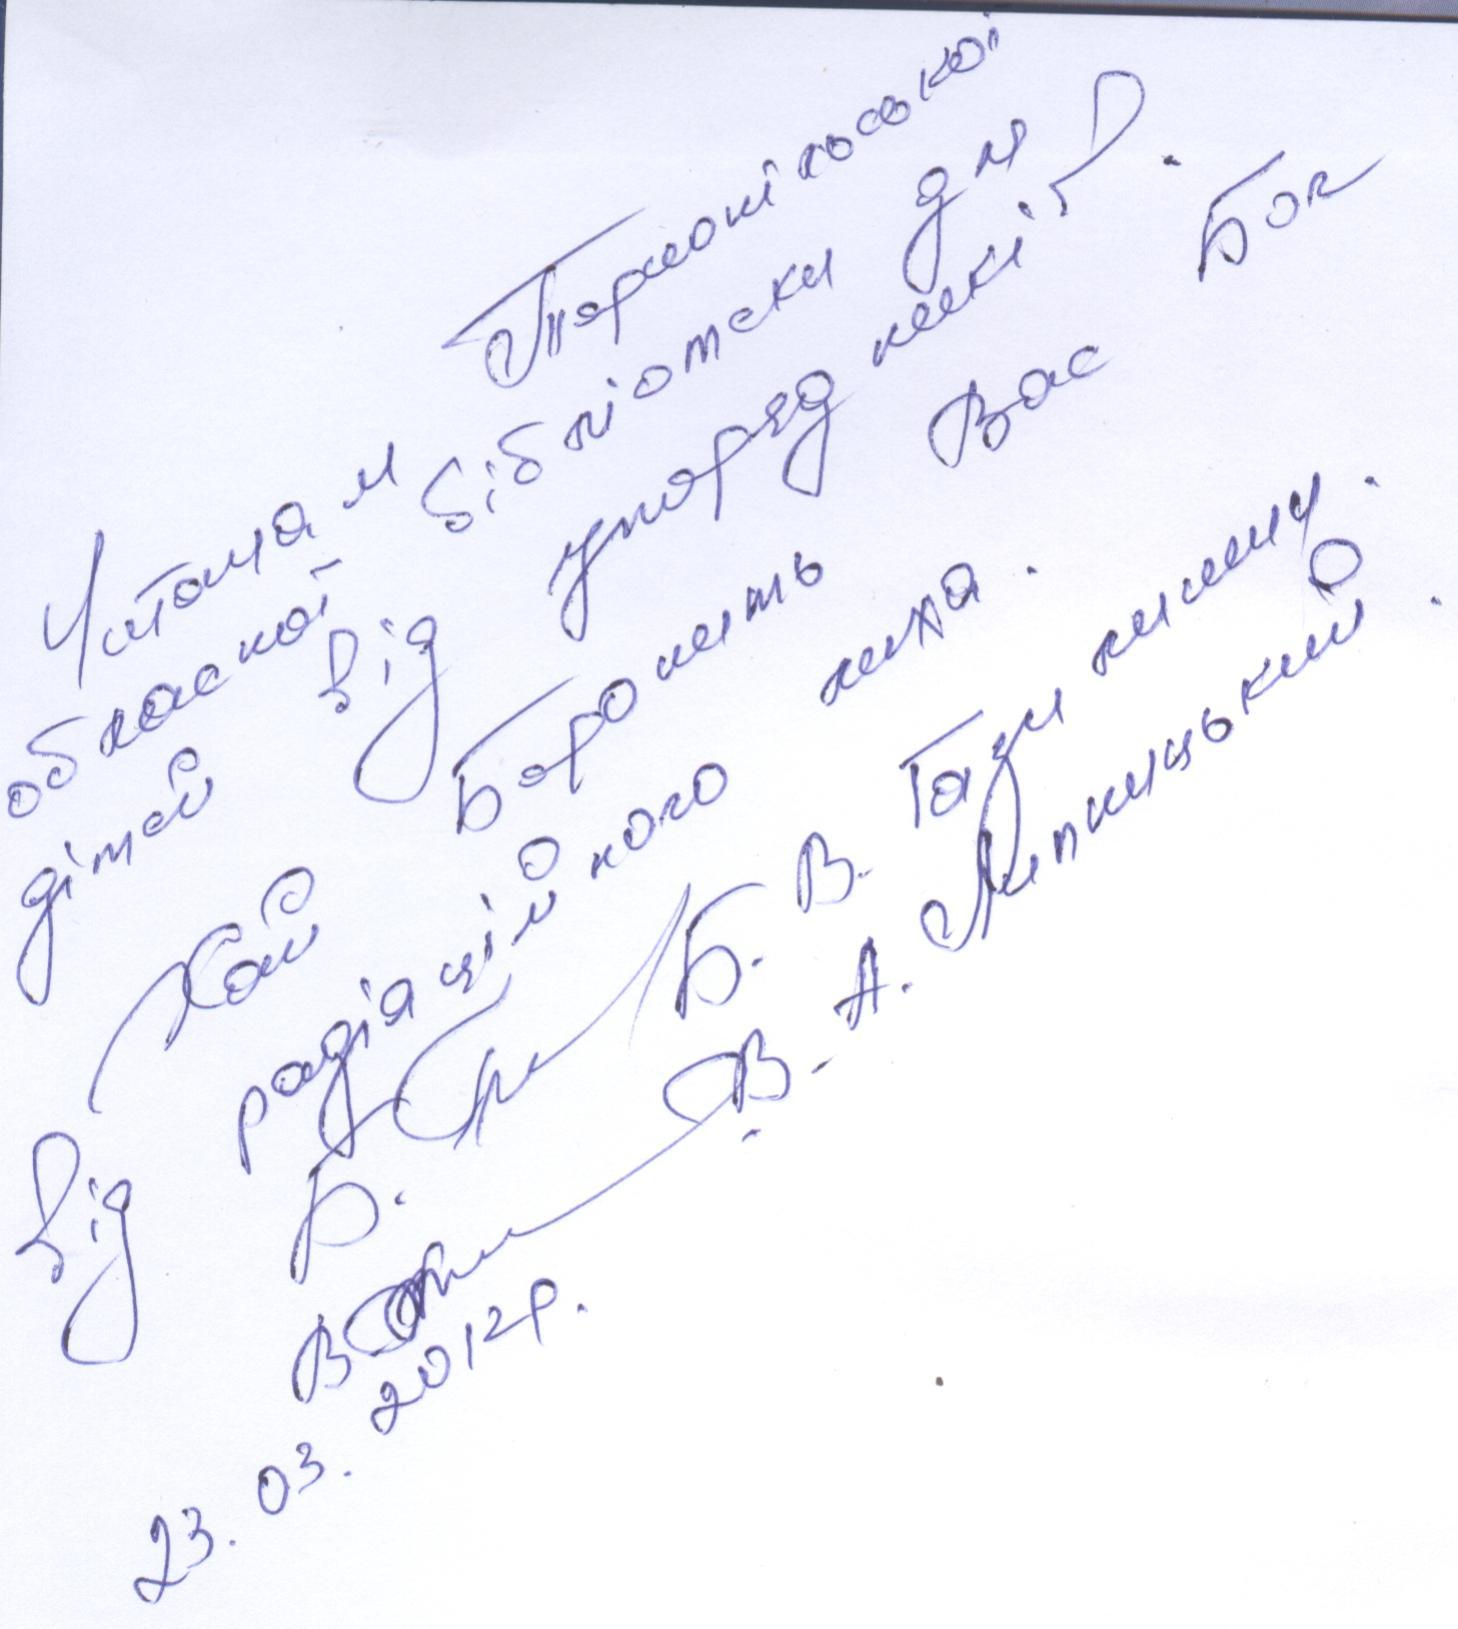 Читачам Тернопільської
обласної бібліотеки для
дітей від упорядників.
Хай боронить Вас Бог
від радіаційного лиха.
Б. Б. В. Газилишину.
В. В. А. Липицький.
23. 03. 2012р.